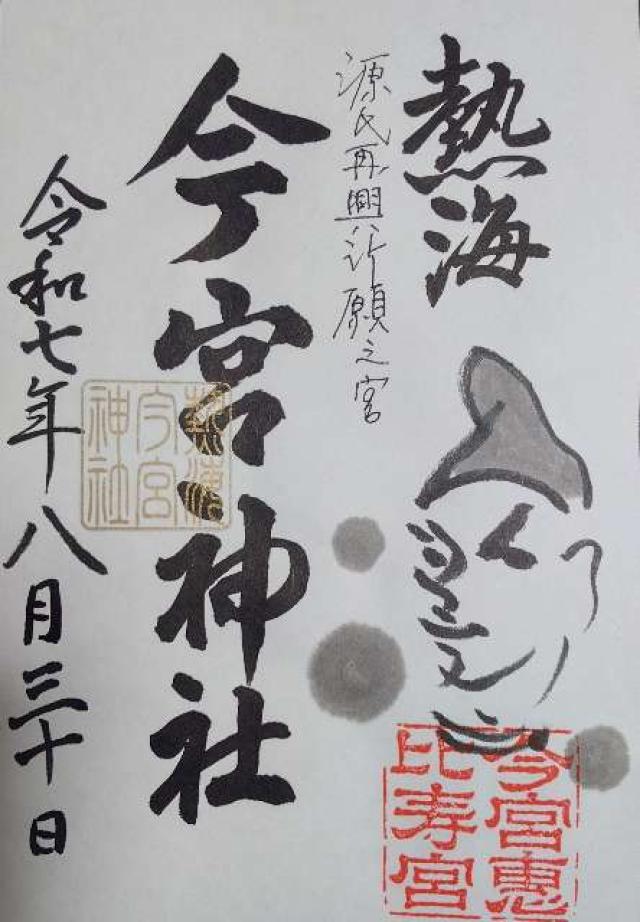 熱海
源氏再興祈願之宮
今宮神社
令和七年八月三十日
熱海
今宮
神社
今宮恵
比寿宮